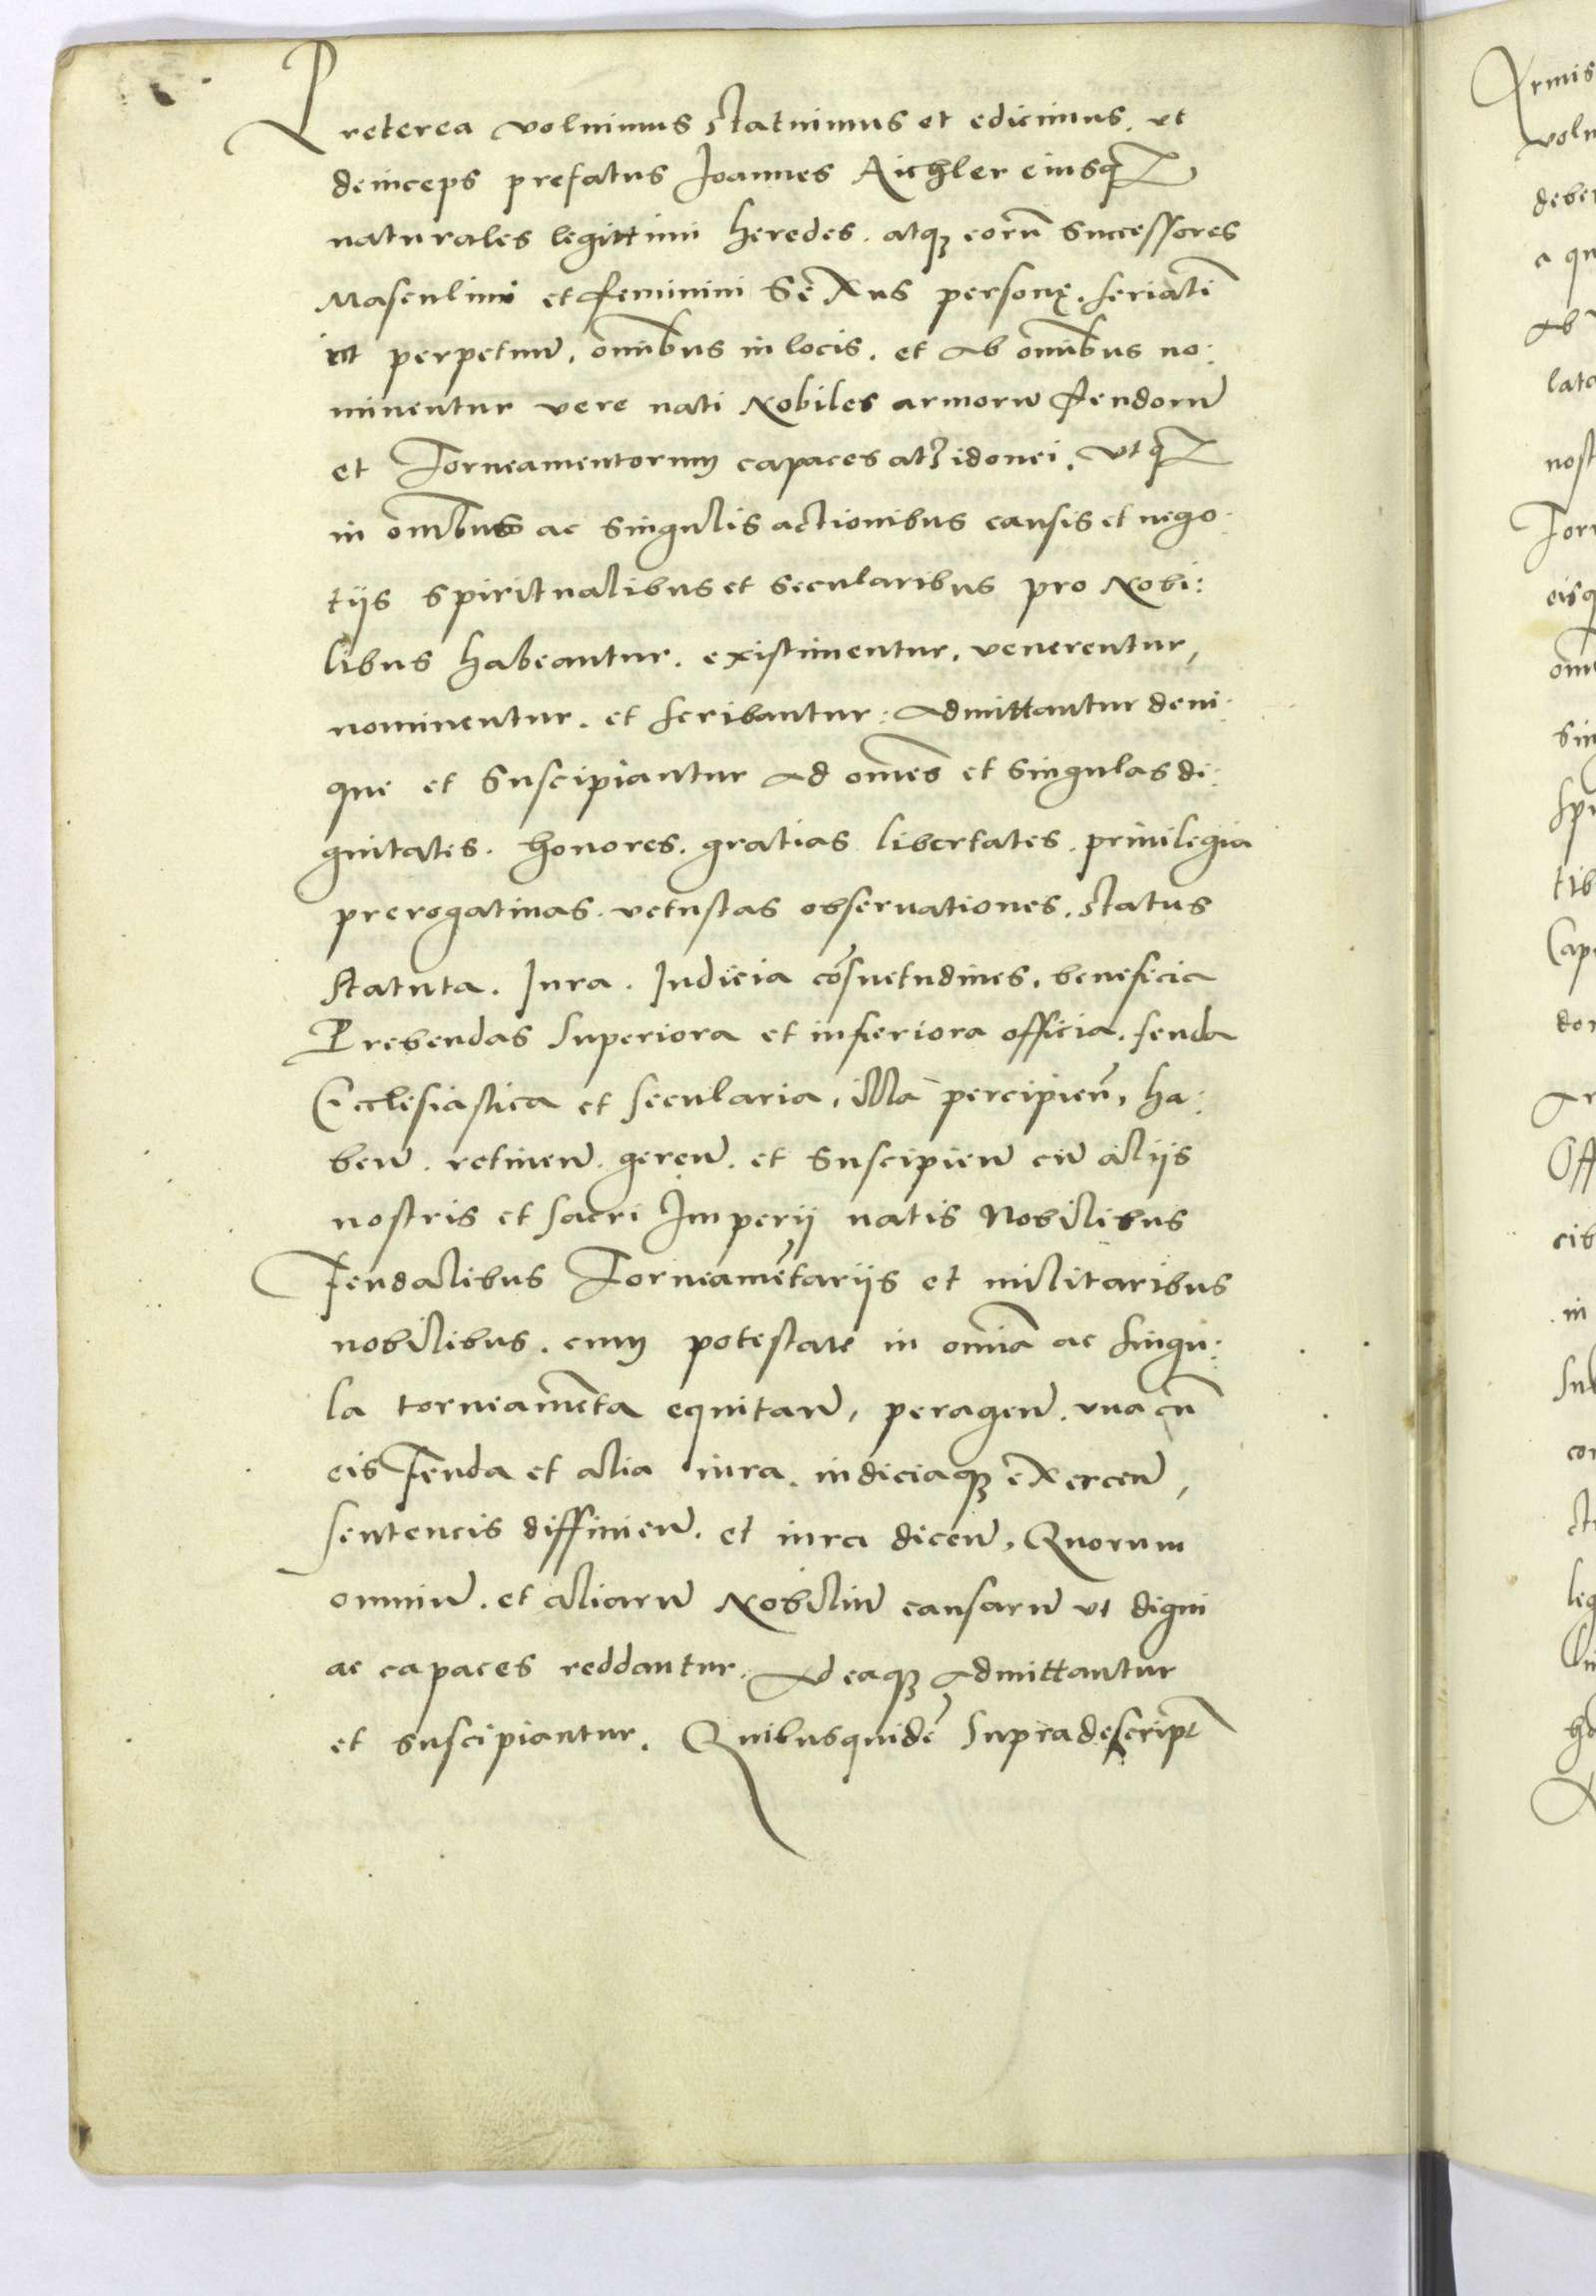 Preterea volumus statuimus et edicimus. vt
deinceps prefatus Joannes Aichler eiusqꝫ
naturales legittimi heredes. atqꝫ eorū Successores
Masculini et feminini Sexus personę. seriatī
in perpetuū, om̄ibus in locis. et ab om̄ibus no:
minentur vere nati Nobiles armorū feudorū
et Torneamentorum capaces atqꝫ idonei. Vtqꝫ
in om̄ibus ac Singulis actionibus causis et nego:
tijs Spiritualibus et Secularibus pro Nobi:
libus habeantur. existimentur, venerentur,
nominentur. et scribantur: Admittantur deni:
que et Suscipiantur ad om̄es et Singulas di:
gnitates. honores. gratias libertates. priuilegia
prerogatiuas. vetustas obseruationes. status
Statuta. Jura. Judicia cōsuetudines, beneficia
Prebendas Superiora et inferiora officia. feuda
Ecclesiastica et Secularia, illa percipien̄, ha:
ben̄. retinen̄. geren̄. et Suscipien̄ cū alijs
nostris et Sacri Imperij natis Nobilibus
Feudalibus Torneamētarijs et militaribus
nobilibus. cum potestate in om̄ia ac singu:
la torneamēta equitan̄, peragen̄. vna cū
eis Feuda et alia iura. iudiciaqꝫ exercen̄,
sentencis diffinien̄. et iura dicen̄, Quorum
omniū. et aliarū Nobiliū causarū vt digni
ac capaces reddantur. Ad eaqꝫ admittantur
et suscipiantur. Quibusquidē Supradescript
Armis
volu
deber
a qu
Ab
lata
nost
Tor
eisq
om̄
Sin
Spi
tib
Cap
dor
Ar
Off
cib
in
Sub
con
ct
leg
ho